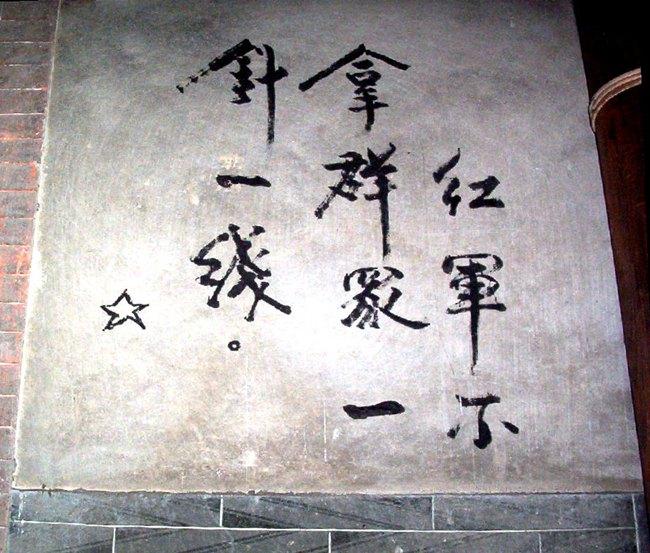 紅軍不
拿群眾一
針一綫。